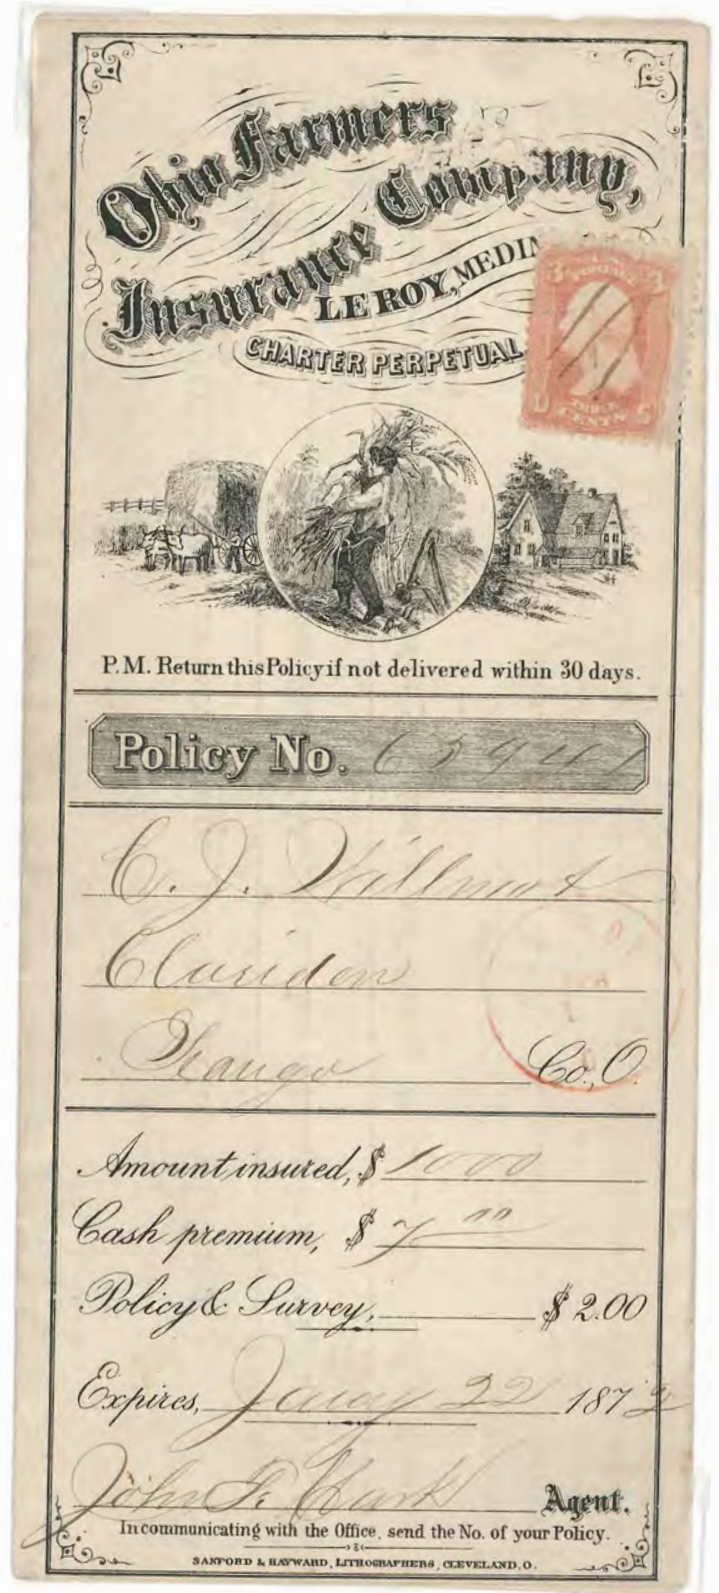 Ohio Farmers
Insurance Company,
LE ROY, MEDIN
CHARTER PERPETUAL
3 U.S. 3
POSTAGE
THREE
U CENTS S
P.M. Return this Policy if not delivered within 30 days.
Policy No. 65941
C. J. Willmot
Claridon
Geauga Co., O.
Amount insured, $ 1000
Cash premium, $ 7 00
Policy & Survey, $ 2.00
Expires, Jany 22 1872
John F. Clark Agent.
In communicating with the Office, send the No. of your Policy.
SANFORD & HAYWARD, LITHOGRAPHERS, CLEVELAND, O.